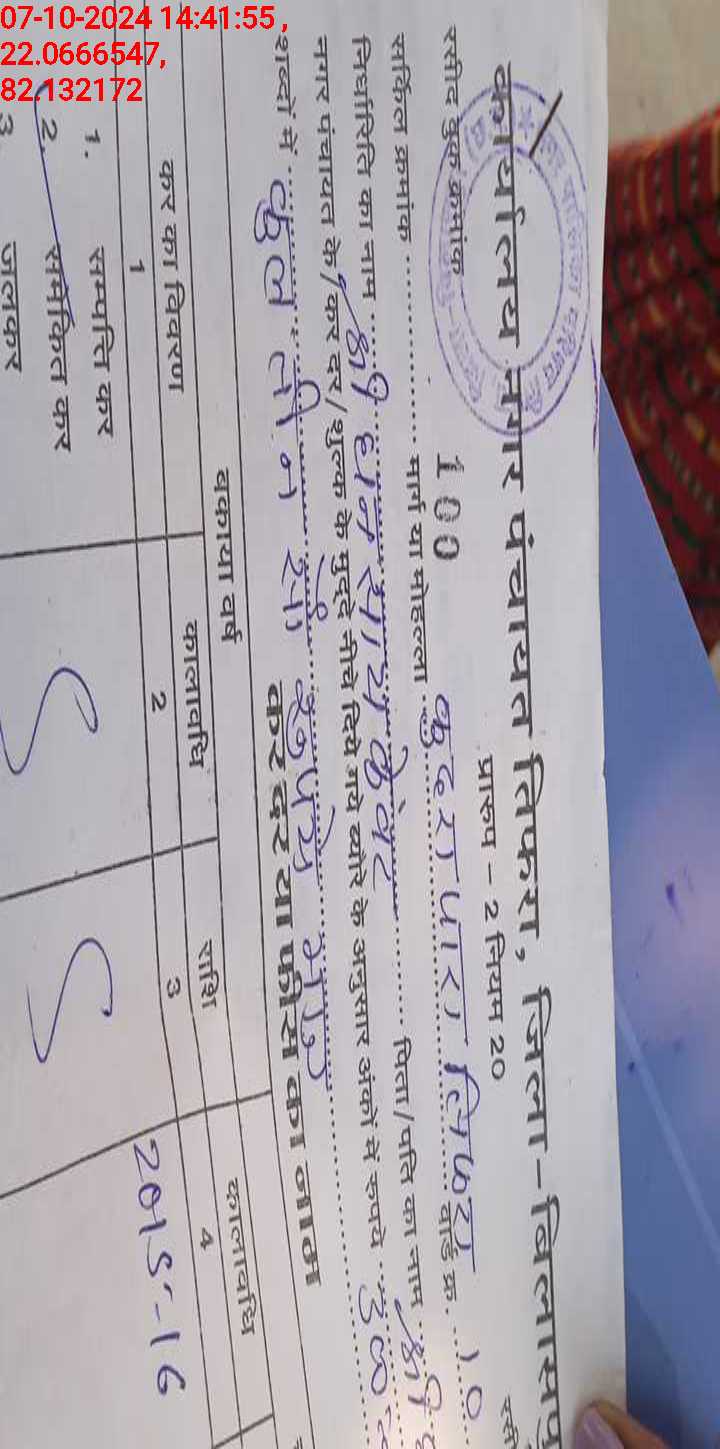 07-10-2024 14:41:55,
22.0666547,
82.132172
कार्यालय नगर पंचायत तिफरा, जिला-बिलासपु
प्रारूप - 2 नियम 20
रसीद बुक क्रमांक 100
सर्किल क्रमांक ............ मार्ग या मोहल्ला कुदरापारा तिफरा वार्ड क्र. 10
निर्धारिति का नाम श्री घनश्याम केंवट पिता/पति का नाम श्री
नगर पंचायत के/कर दर/शुल्क के मुद्दे नीचे दिये गये ब्योरे के अनुसार अंकों में रूपये 300
शब्दों में कुल तीन सौ रूपये मात्र
कर दर या फीस का नाम
बकाया वर्ष
कर का विवरण कालावधि राशि कालावधि
1 2 3 4
1. सम्पत्ति कर
2. समेकित कर 2015-16
3. जलकर